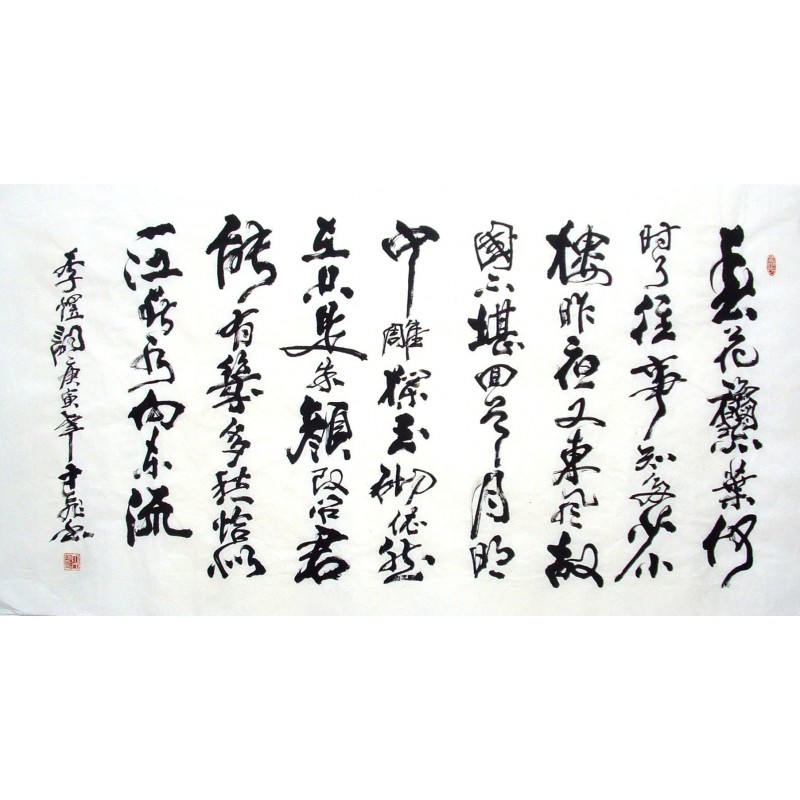 春花龝葉何
时了往事知多少小
樓昨夜又東风故
國不堪回首月明
中雕欄玉砌依然
在只是朱顔改问君
能有幾多愁恰似
一江春水向东流
李煜詞庚寅年书